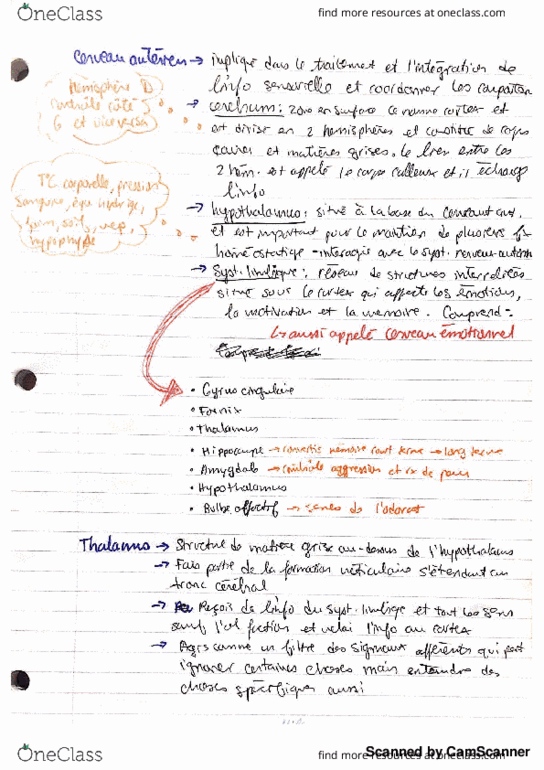 OneClass
find more resources at oneclass.com
cerveau antérieur → impliqué dans le traitement et l'intégration de
l'info sensorielle et coordonner les
hémisphère D
contrôle côté
G et vice versa
→ cerebrum : zone en surface se nomme cortex et
est divisé en 2 hémisphères et constitué de corps
et matières grises, le lien entre les
2 hém. est appelé le corps calleux et il échange
l'info
T°C corporelle, pression
sanguine, équ. hydrique,
faim, soif,
hypophyse
→ hypothalamus : situé à la base du cerveau ant.
et est important pour le maintien de plusieurs
homéostatique - interagie avec le syst. nerveux autonom
→ Syst. limbique : réseau de structures interreliées
situé sous le cortex qui affecte les émotions,
la motivation et la mémoire. Comprend :
↳ aussi appelé cerveau émotionnel
• Gyrus cingulaire
• Fornix
• Thalamus
• Hippocampe → convertis mémoire court terme → long terme
• Amygdale → contrôle aggression et rx de peur
• Hypothalamus
• Bulbe olfactif → sens de l'odorat
Thalamus → Structure de matière grise au-dessus de l'hypothalamus
→ Fais partie de la formation réticulaire s'étendant au
tronc cérébral
→ Reçois de l'info du syst. limbique et tout les sens
sauf l'olfaction et relai l'info au cortex
→ Agis comme un filtre des signaux afférents qui peut
ignorer certaines choses mais entendre des
choses spécifiques aussi
OneClass
find more resources at oneclass.com
Scanned by CamScanner